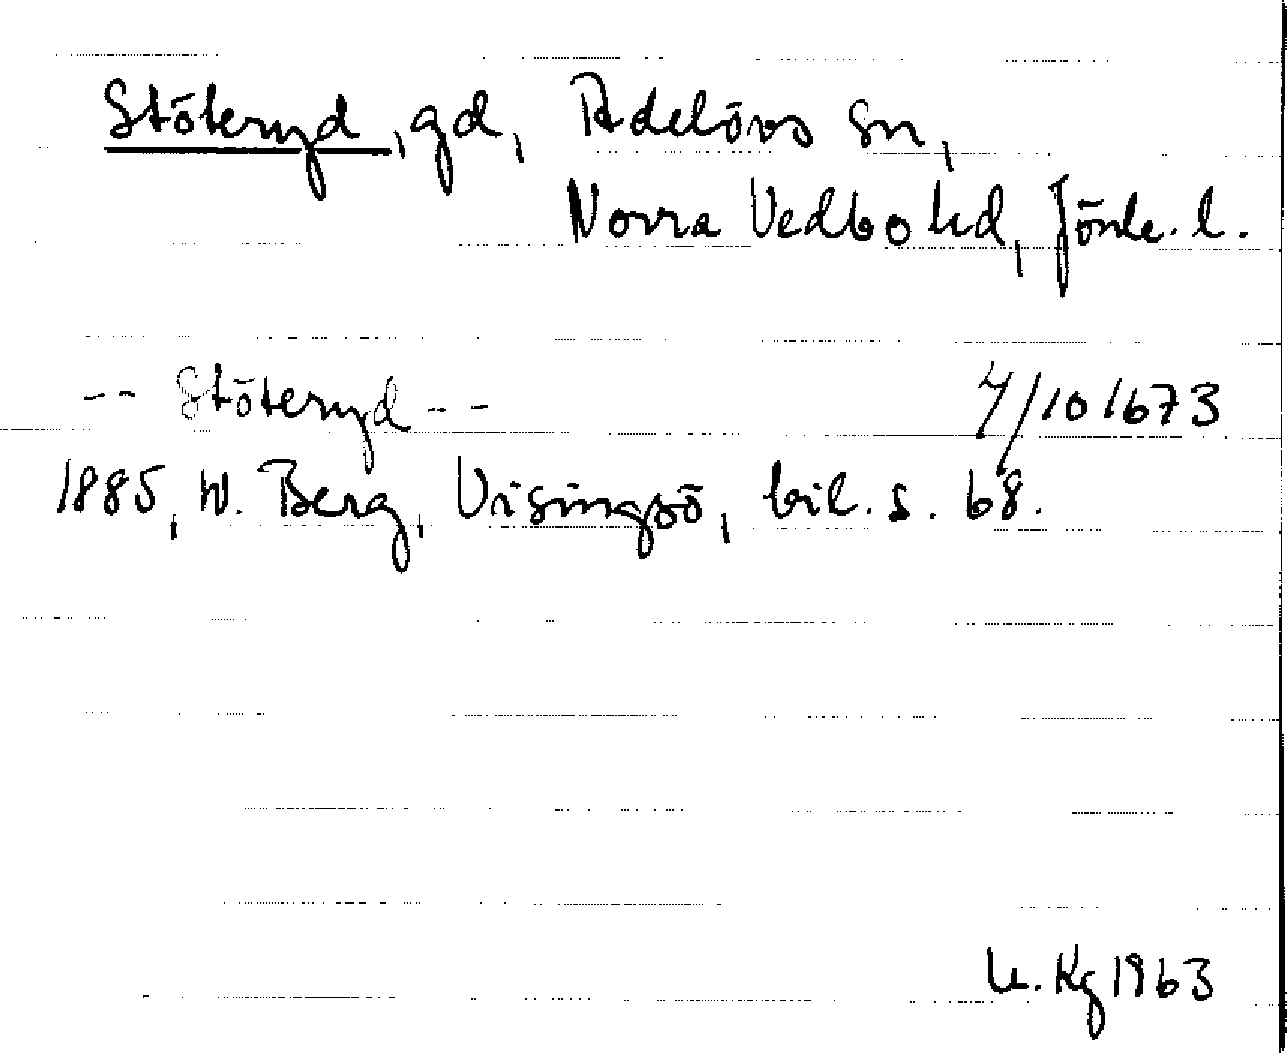 Stöteryd, gd, Adelövs sn,
Norra Vedbo hd, Jönk. l.
-- Stöteryd -- 4/10 1673
1885, W. Berg, Visingsö, bil. s. 68.
U. Kg 1963